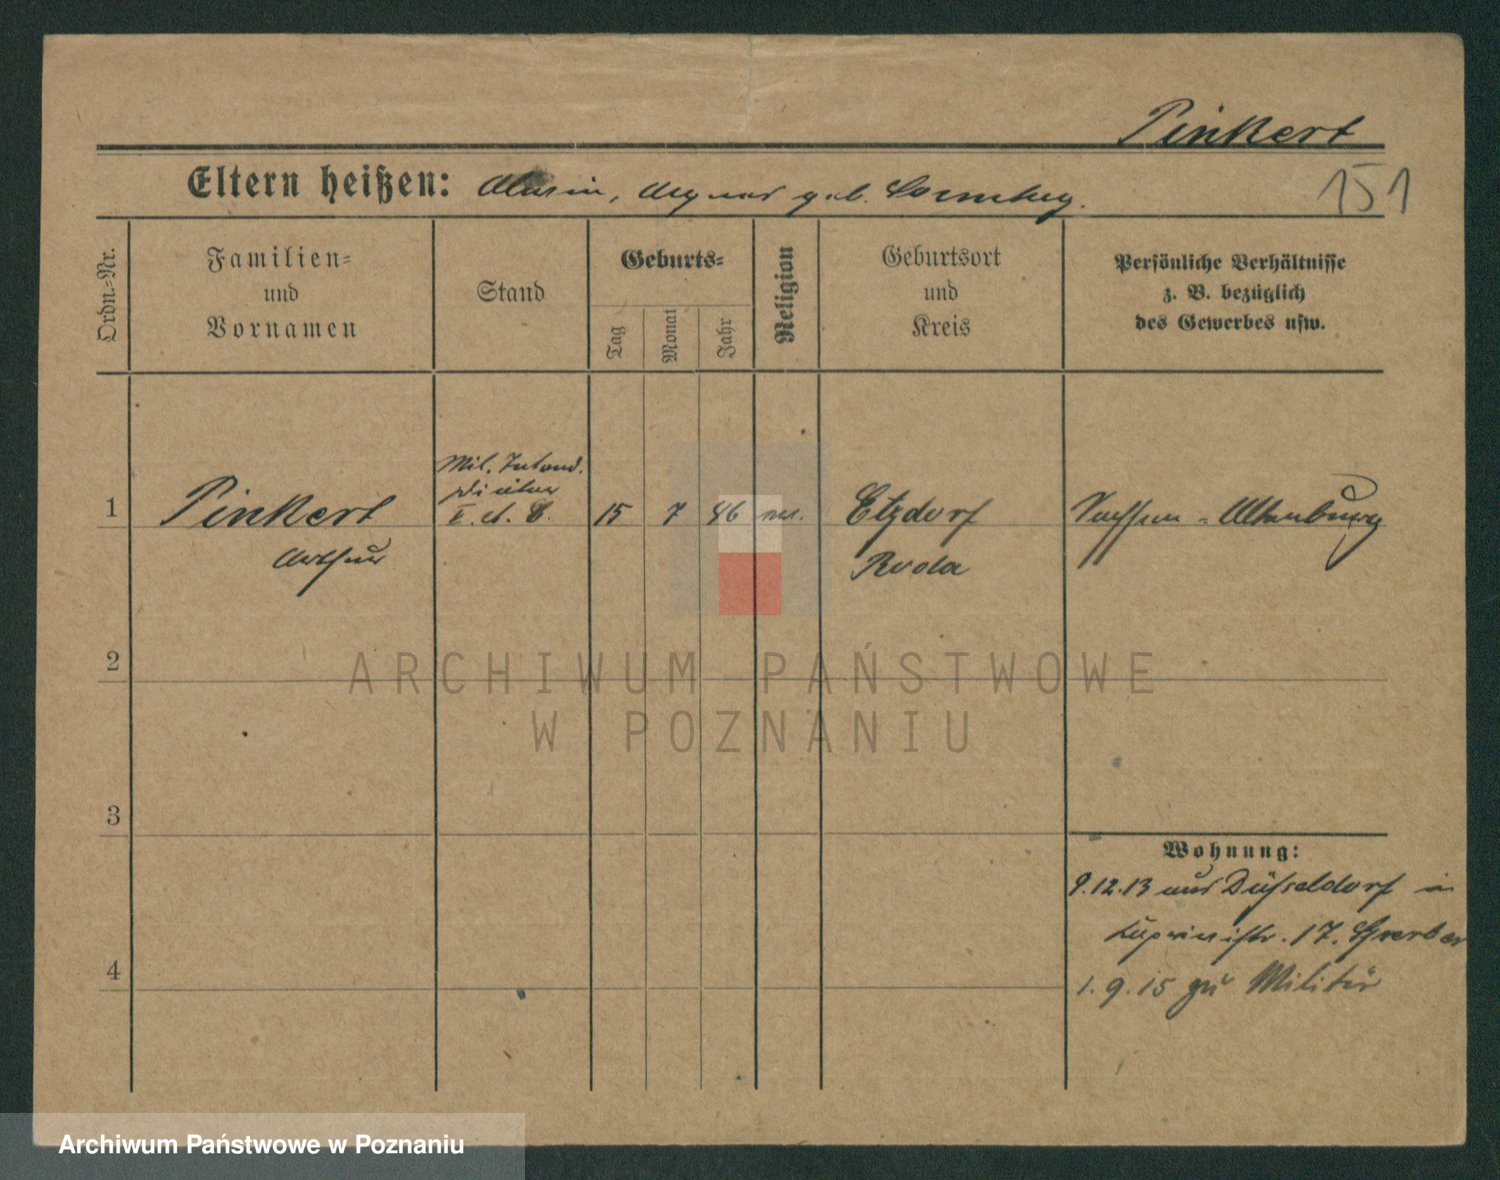 Pinkert
Eltern heißen: Alwin, geb.
151
Ordn.-Nr.
Familien-
und
Vornamen
Stand
Geburts-
Tag
Monat
Jahr
Religion
Geburtsort
und
Kreis
Persönliche Verhältnisse
z. B. bezüglich
des Gewerbes usw.
Mil. Intend.
1 Pinkert 15 7 Etzdorf Sachsen-Altenburg
Arthur Roda
2
3
4
Wohnung:
9.12.13 aus Düsseldorf in
17. Gerber
1.9.15 zu Militär
ARCHIWUM PAŃSTWOWE
W POZNANIU
Archiwum Państwowe w Poznaniu